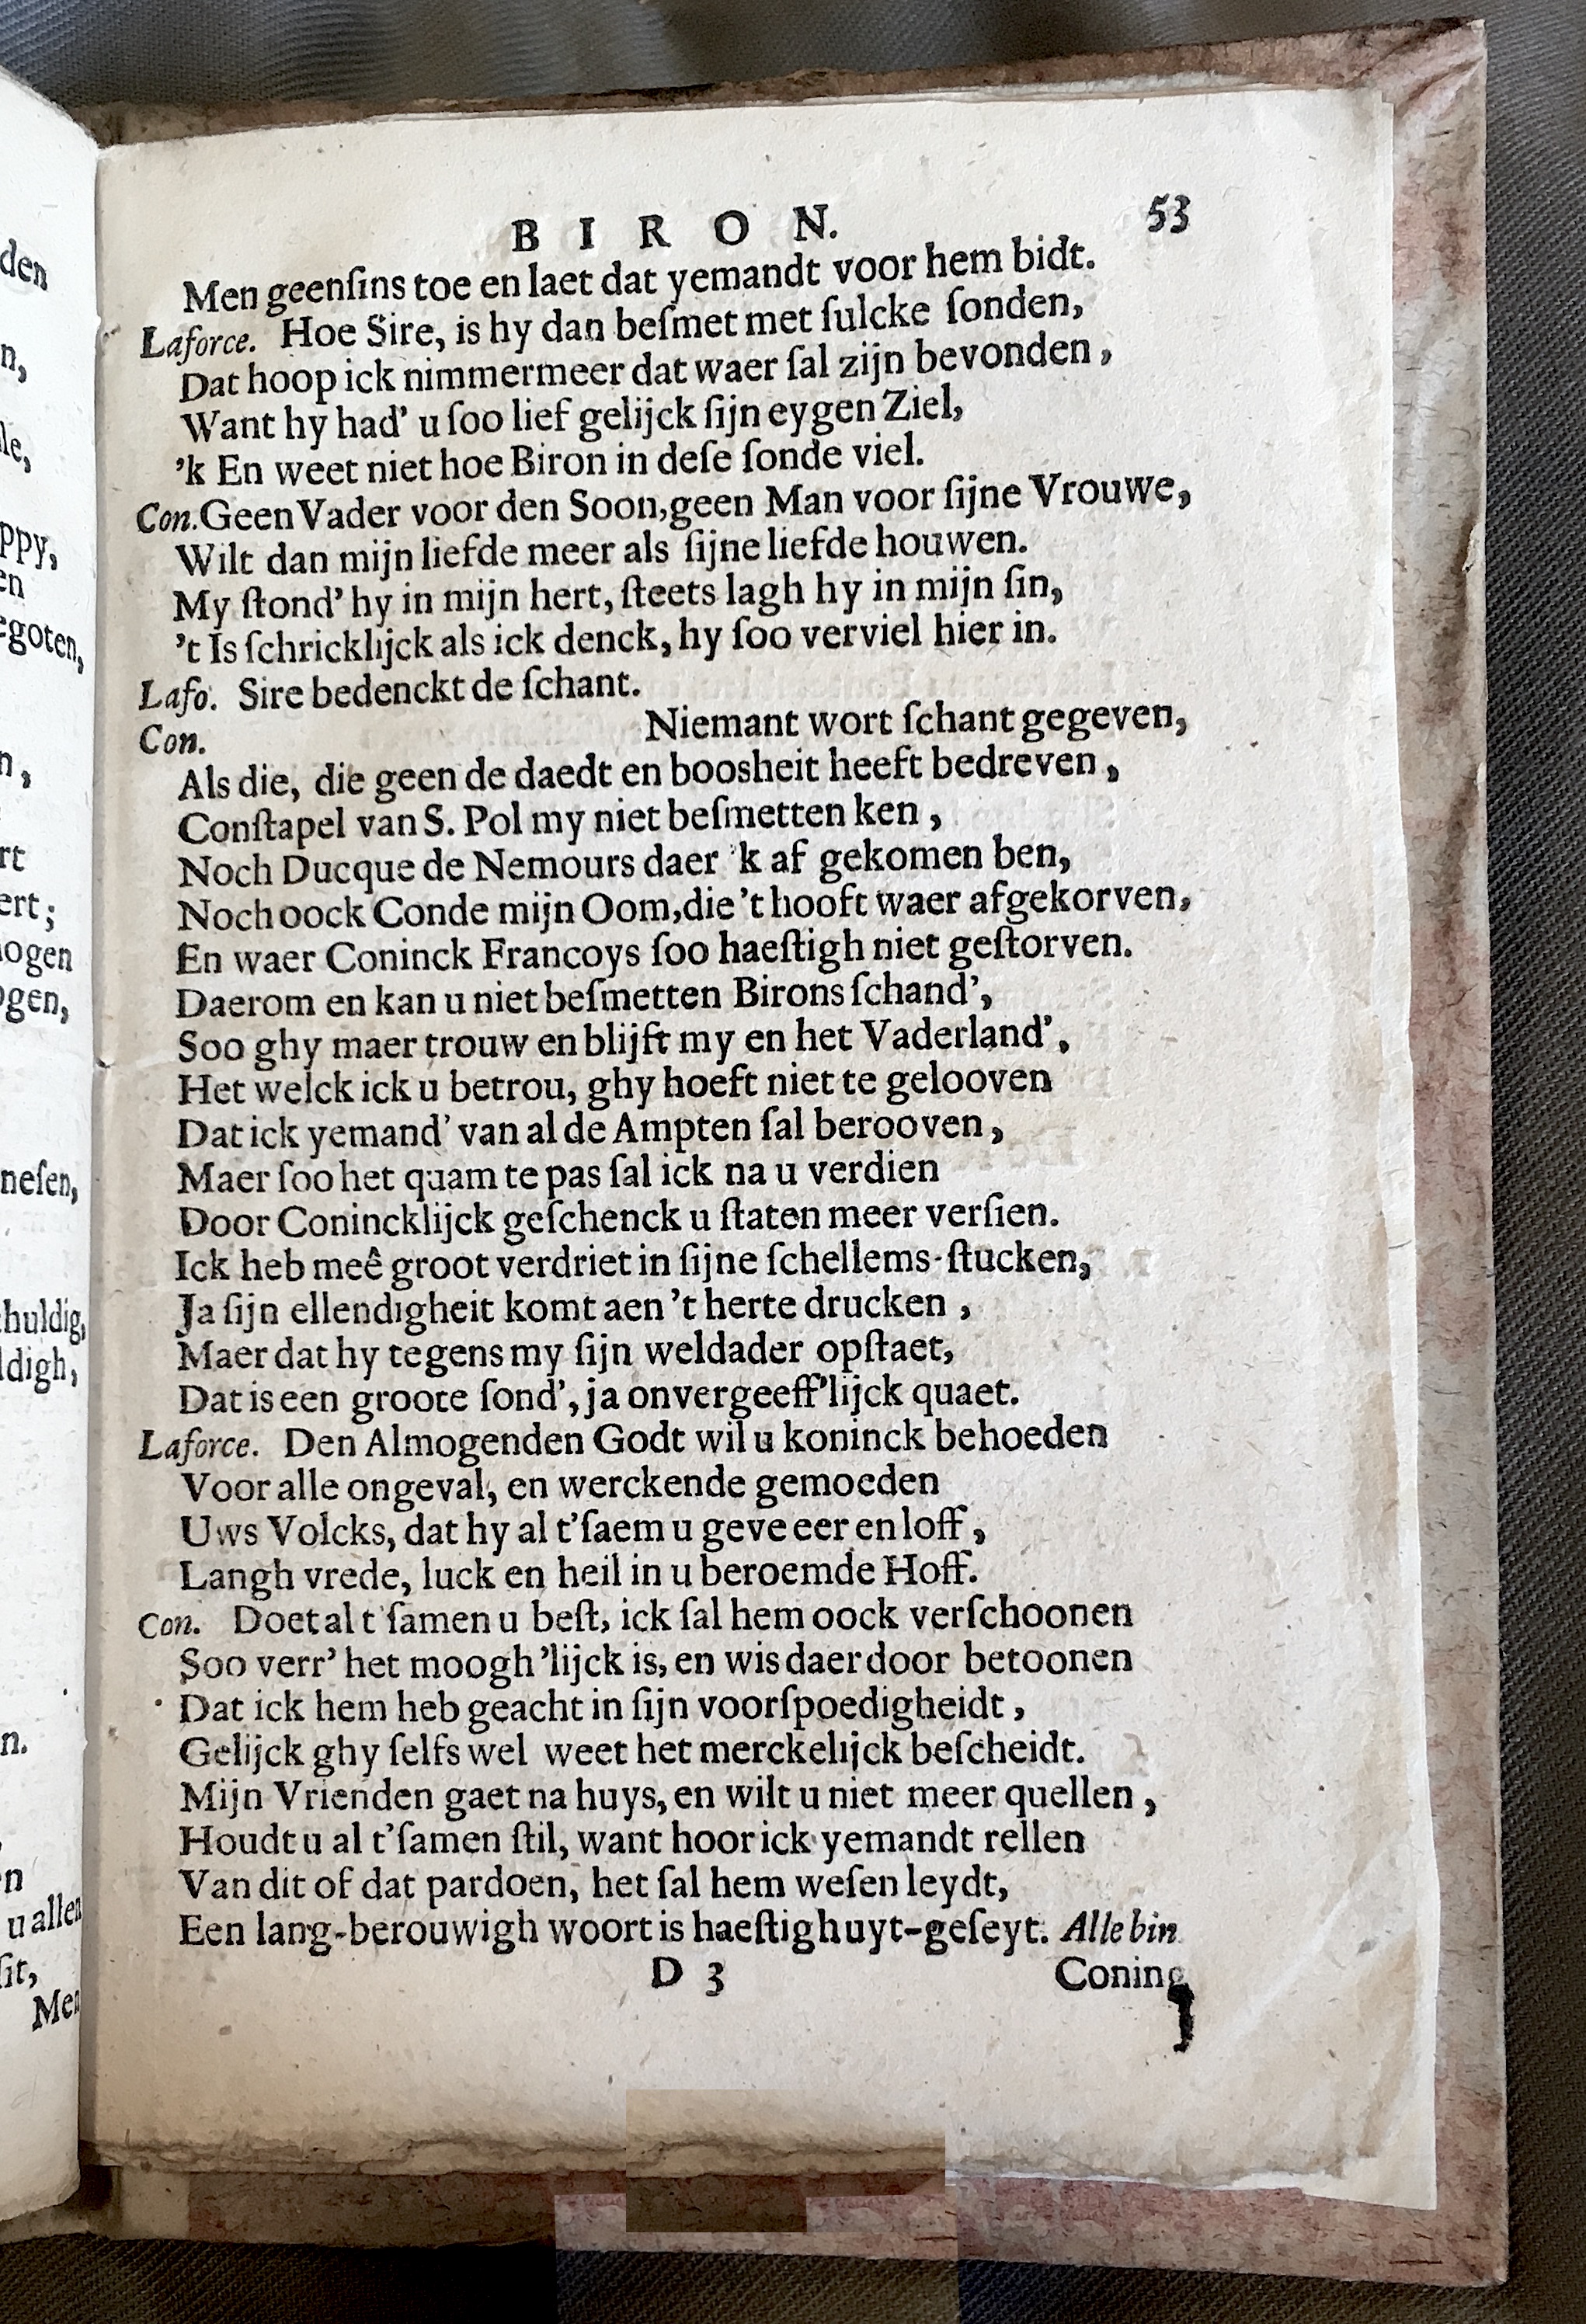 BIRON. 53
Men geenſins toe en laet dat yemandt voor hem bidt.
Laforce. Hoe Sire, is hy dan beſmet met ſulcke ſonden,
Dat hoop ick nimmermeer dat waer ſal zijn bevonden,
Want hy had' u ſoo lief gelijck ſijn eygen Ziel,
'k En weet niet hoe Biron in deſe ſonde viel.
Con. Geen Vader voor den Soon, geen Man voor ſijne Vrouwe,
Wilt dan mijn liefde meer als ſijne liefde houwen.
My ſtond' hy in mijn hert, ſteets lagh hy in mijn ſin,
't Is ſchricklijck als ick denck, hy ſoo verviel hier in.
Lafo. Sire bedenckt de ſchant.
Con. Niemant wort ſchant gegeven,
Als die, die geen de daedt en boosheit heeft bedreven,
Conſtapel van S. Pol my niet beſmetten ken,
Noch Ducque de Nemours daer 'k af gekomen ben,
Noch oock Conde mijn Oom, die 't hooft waer afgekorven,
En waer Coninck Francoys ſoo haeſtigh niet geſtorven.
Daerom en kan u niet beſmetten Birons ſchand',
Soo ghy maer trouw en blijft my en het Vaderland',
Het welck ick u betrou, ghy hoeft niet te gelooven
Dat ick yemand' van al de Ampten ſal berooven,
Maer ſoo het quam te pas ſal ick na u verdien
Door Conincklijck geſchenck u ſtaten meer verſien.
Ick heb meê groot verdriet in ſijne ſchellems-ſtucken,
Ja ſijn ellendigheit komt aen 't herte drucken,
Maer dat hy tegens my ſijn weldader opſtaet,
Dat is een groote ſond', ja onvergeeff'lijck quaet.
Laforce. Den Almogenden Godt wil u koninck behoeden
Voor alle ongeval, en werckende gemoeden
Uws Volcks, dat hy al t'ſaem u geve eer en loff,
Langh vrede, luck en heil in u beroemde Hoff.
Con. Doet al t'ſamen u beſt, ick ſal hem oock verſchoonen
Soo verr' het moogh'lijck is, en wis daer door betoonen
Dat ick hem heb geacht in ſijn voorſpoedigheidt,
Gelijck ghy ſelfs wel weet het merckelijck beſcheidt.
Mijn Vrienden gaet na huys, en wilt u niet meer quellen,
Houdt u al t'ſamen ſtil, want hoor ick yemandt rellen
Van dit of dat pardoen, het ſal hem weſen leydt,
Een lang-berouwigh woort is haeſtigh uyt-geſeyt. Alle bin
D 3 Coning